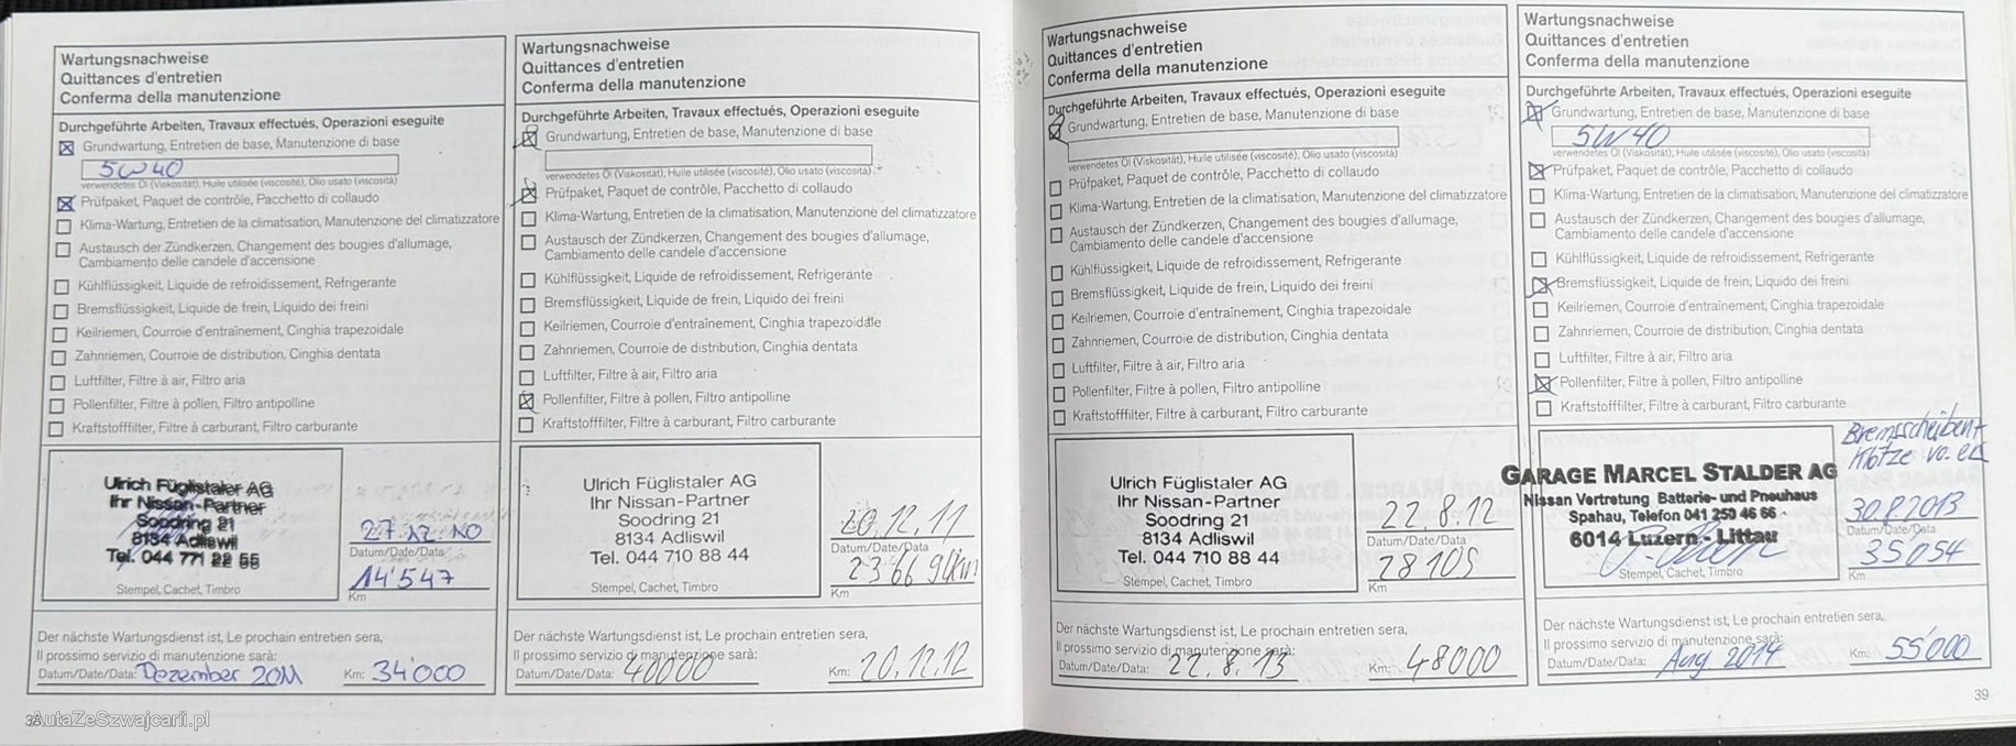 Wartungsnachweise
Quittances d'entretien
Conferma della manutenzione
Durchgeführte Arbeiten, Travaux effectués, Operazioni eseguite
Grundwartung, Entretien de base, Manutenzione di base
5W40
verwendetes Öl (Viskosität), Huile utilisée (viscosité), Olio usato (viscosità)
Prüfpaket, Paquet de contrôle, Pacchetto di collaudo
Klima-Wartung, Entretien de la climatisation, Manutenzione del climatizzatore
Austausch der Zündkerzen, Changement des bougies d'allumage,
Cambiamento delle candele d'accensione
Kühlflüssigkeit, Liquide de refroidissement, Refrigerante
Bremsflüssigkeit, Liquide de frein, Liquido dei freini
Keilriemen, Courroie d'entraînement, Cinghia trapezoidale
Zahnriemen, Courroie de distribution, Cinghia dentata
Luftfilter, Filtre à air, Filtro aria
Pollenfilter, Filtre à pollen, Filtro antipolline
Kraftstofffilter, Filtre à carburant, Filtro carburante
Ulrich Füglistaler AG
Ihr Nissan-Partner
Soodring 21
8134 Adliswil
Tel. 044 771 22 55
Stempel, Cachet, Timbro
27.12.10
Datum/Date/Data
14'547
Km
Der nächste Wartungsdienst ist, Le prochain entretien sera,
Il prossimo servizio di manutenzione sarà:
Datum/Date/Data: Dezember 2011 Km: 34'000
Wartungsnachweise
Quittances d'entretien
Conferma della manutenzione
Durchgeführte Arbeiten, Travaux effectués, Operazioni eseguite
Grundwartung, Entretien de base, Manutenzione di base
verwendetes Öl (Viskosität), Huile utilisée (viscosité), Olio usato (viscosità)
Prüfpaket, Paquet de contrôle, Pacchetto di collaudo
Klima-Wartung, Entretien de la climatisation, Manutenzione del climatizzatore
Austausch der Zündkerzen, Changement des bougies d'allumage,
Cambiamento delle candele d'accensione
Kühlflüssigkeit, Liquide de refroidissement, Refrigerante
Bremsflüssigkeit, Liquide de frein, Liquido dei freini
Keilriemen, Courroie d'entraînement, Cinghia trapezoidale
Zahnriemen, Courroie de distribution, Cinghia dentata
Luftfilter, Filtre à air, Filtro aria
Pollenfilter, Filtre à pollen, Filtro antipolline
Kraftstofffilter, Filtre à carburant, Filtro carburante
Ulrich Füglistaler AG
Ihr Nissan-Partner
Soodring 21
8134 Adliswil
Tel. 044 710 88 44
Stempel, Cachet, Timbro
20.12.11
Datum/Date/Data
23669 km
Km
Der nächste Wartungsdienst ist, Le prochain entretien sera,
Il prossimo servizio di manutenzione sarà:
Datum/Date/Data: 40000 Km: 20.12.12
Wartungsnachweise
Quittances d'entretien
Conferma della manutenzione
Durchgeführte Arbeiten, Travaux effectués, Operazioni eseguite
Grundwartung, Entretien de base, Manutenzione di base
verwendetes Öl (Viskosität), Huile utilisée (viscosité), Olio usato (viscosità)
Prüfpaket, Paquet de contrôle, Pacchetto di collaudo
Klima-Wartung, Entretien de la climatisation, Manutenzione del climatizzatore
Austausch der Zündkerzen, Changement des bougies d'allumage,
Cambiamento delle candele d'accensione
Kühlflüssigkeit, Liquide de refroidissement, Refrigerante
Bremsflüssigkeit, Liquide de frein, Liquido dei freini
Keilriemen, Courroie d'entraînement, Cinghia trapezoidale
Zahnriemen, Courroie de distribution, Cinghia dentata
Luftfilter, Filtre à air, Filtro aria
Pollenfilter, Filtre à pollen, Filtro antipolline
Kraftstofffilter, Filtre à carburant, Filtro carburante
Ulrich Füglistaler AG
Ihr Nissan-Partner
Soodring 21
8134 Adliswil
Tel. 044 710 88 44
Stempel, Cachet, Timbro
22.8.12
Datum/Date/Data
28105
Km
Der nächste Wartungsdienst ist, Le prochain entretien sera,
Il prossimo servizio di manutenzione sarà:
Datum/Date/Data: 22.8.13 Km: 48000
Wartungsnachweise
Quittances d'entretien
Conferma della manutenzione
Durchgeführte Arbeiten, Travaux effectués, Operazioni eseguite
Grundwartung, Entretien de base, Manutenzione di base
5W40
verwendetes Öl (Viskosität), Huile utilisée (viscosité), Olio usato (viscosità)
Prüfpaket, Paquet de contrôle, Pacchetto di collaudo
Klima-Wartung, Entretien de la climatisation, Manutenzione del climatizzatore
Austausch der Zündkerzen, Changement des bougies d'allumage,
Cambiamento delle candele d'accensione
Kühlflüssigkeit, Liquide de refroidissement, Refrigerante
Bremsflüssigkeit, Liquide de frein, Liquido dei freini
Keilriemen, Courroie d'entraînement, Cinghia trapezoidale
Zahnriemen, Courroie de distribution, Cinghia dentata
Luftfilter, Filtre à air, Filtro aria
Pollenfilter, Filtre à pollen, Filtro antipolline
Kraftstofffilter, Filtre à carburant, Filtro carburante
Bremsscheiben +
Klötze vo.
GARAGE MARCEL STALDER AG
Nissan Vertretung Batterie- und Pneuhaus
Spahau, Telefon 041 250 46 66
6014 Luzern - Littau
Stempel, Cachet, Timbro
30.8.2013
Datum/Date/Data
35'054
Km
Der nächste Wartungsdienst ist, Le prochain entretien sera,
Il prossimo servizio di manutenzione sarà:
Datum/Date/Data: Aug 2014 Km: 55'000
39
AutaZeSzwajcarii.pl